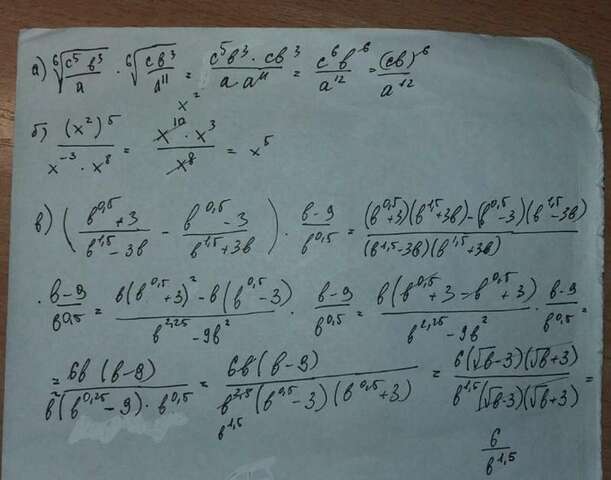 а) ⁶√(c⁵b³/a) · ⁶√(cb³/a¹¹) = c⁵b³ · cb³ / a · a¹¹ = c⁶b⁶ / a¹² = (cb)⁶ / a¹²
б) (x²)⁵ / x⁻³ · x⁸ = x¹⁰ · x³ / x⁸ = x⁵
x²
в) (b^0,5 + 3 / b^1,5 − 3b − b^0,5 − 3 / b^1,5 + 3b) · b − 9 / b^0,5 = (b^0,5 + 3)(b^1,5 + 3b) − (b^0,5 − 3)(b^1,5 − 3b) / (b^1,5 − 3b)(b^1,5 + 3b)
· b − 9 / b^0,5 = b(b^0,5 + 3)² − b(b^0,5 − 3) / b^2,25 − 9b² · b − 9 / b^0,5 = b(b^0,5 + 3 − b^0,5 + 3) / b^2,25 − 9b² · b − 9 / b^0,5 =
= 6b(b − 9) / b²(b^0,25 − 9) · b^0,5 = 6b(b − 9) / b^2,5(b^0,5 − 3)(b^0,5 + 3) = 6(√b − 3)(√b + 3) / b^1,5(√b − 3)(√b + 3) =
b^1,5
6 / b^1,5